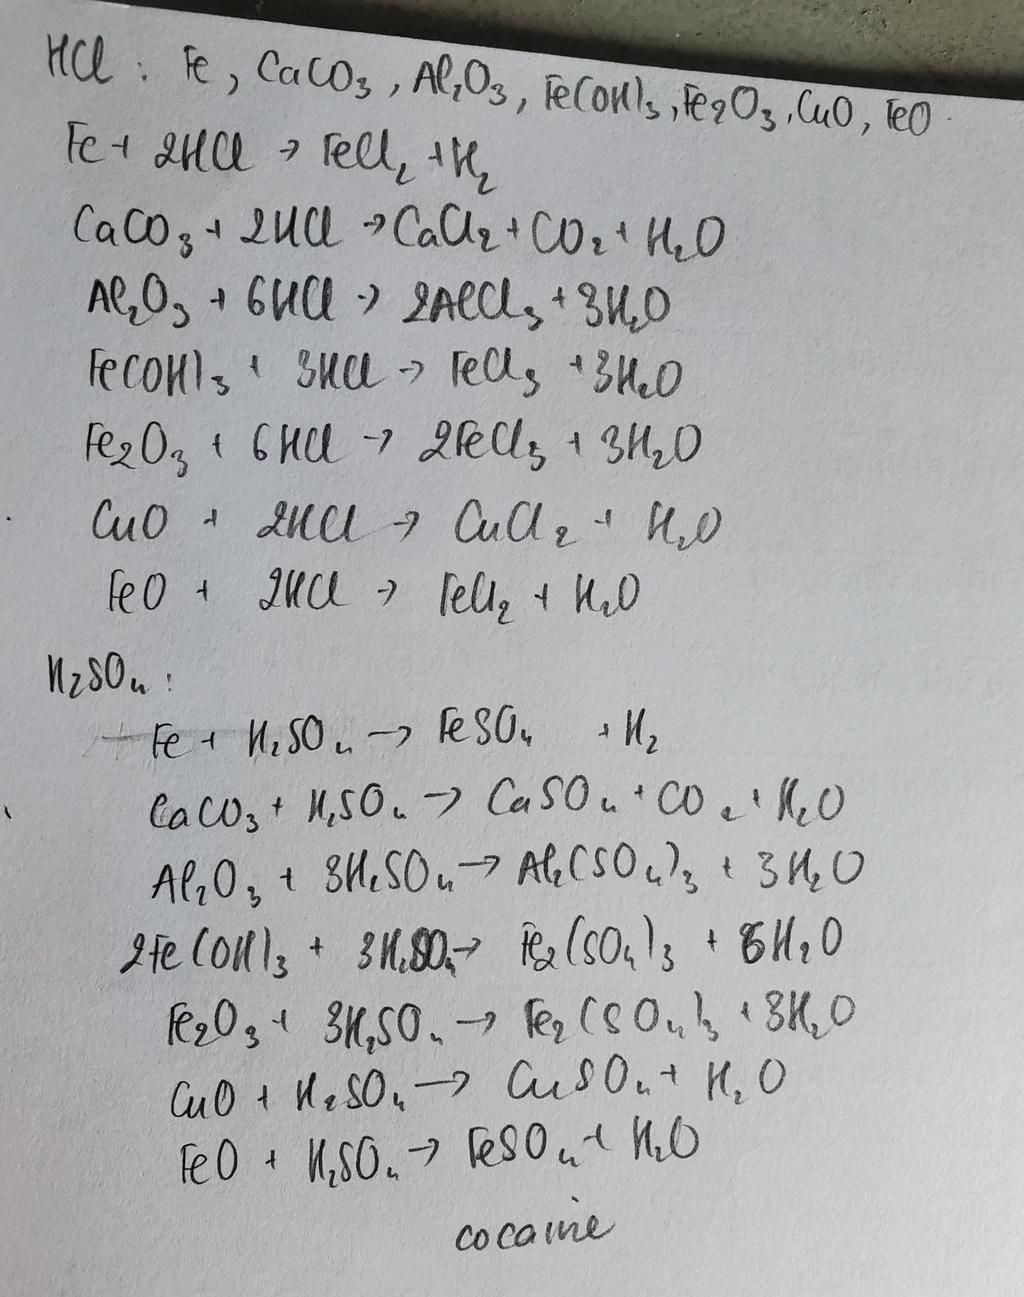 HCl : Fe, CaCO₃, Al₂O₃, Fe(OH)₃, Fe₂O₃, CuO, FeO.
Fe + 2HCl → FeCl₂ + H₂
CaCO₃ + 2HCl → CaCl₂ + CO₂ + H₂O
Al₂O₃ + 6HCl → 2AlCl₃ + 3H₂O
Fe(OH)₃ + 3HCl → FeCl₃ + 3H₂O
Fe₂O₃ + 6HCl → 2FeCl₃ + 3H₂O
CuO + 2HCl → CuCl₂ + H₂O
FeO + 2HCl → FeCl₂ + H₂O
H₂SO₄ :
Fe + H₂SO₄ → FeSO₄ + H₂
CaCO₃ + H₂SO₄ → CaSO₄ + CO₂ + H₂O
Al₂O₃ + 3H₂SO₄ → Al₂(SO₄)₃ + 3H₂O
2Fe(OH)₃ + 3H₂SO₄ → Fe₂(SO₄)₃ + 6H₂O
Fe₂O₃ + 3H₂SO₄ → Fe₂(SO₄)₃ + 3H₂O
CuO + H₂SO₄ → CuSO₄ + H₂O
FeO + H₂SO₄ → FeSO₄ + H₂O
cocaine